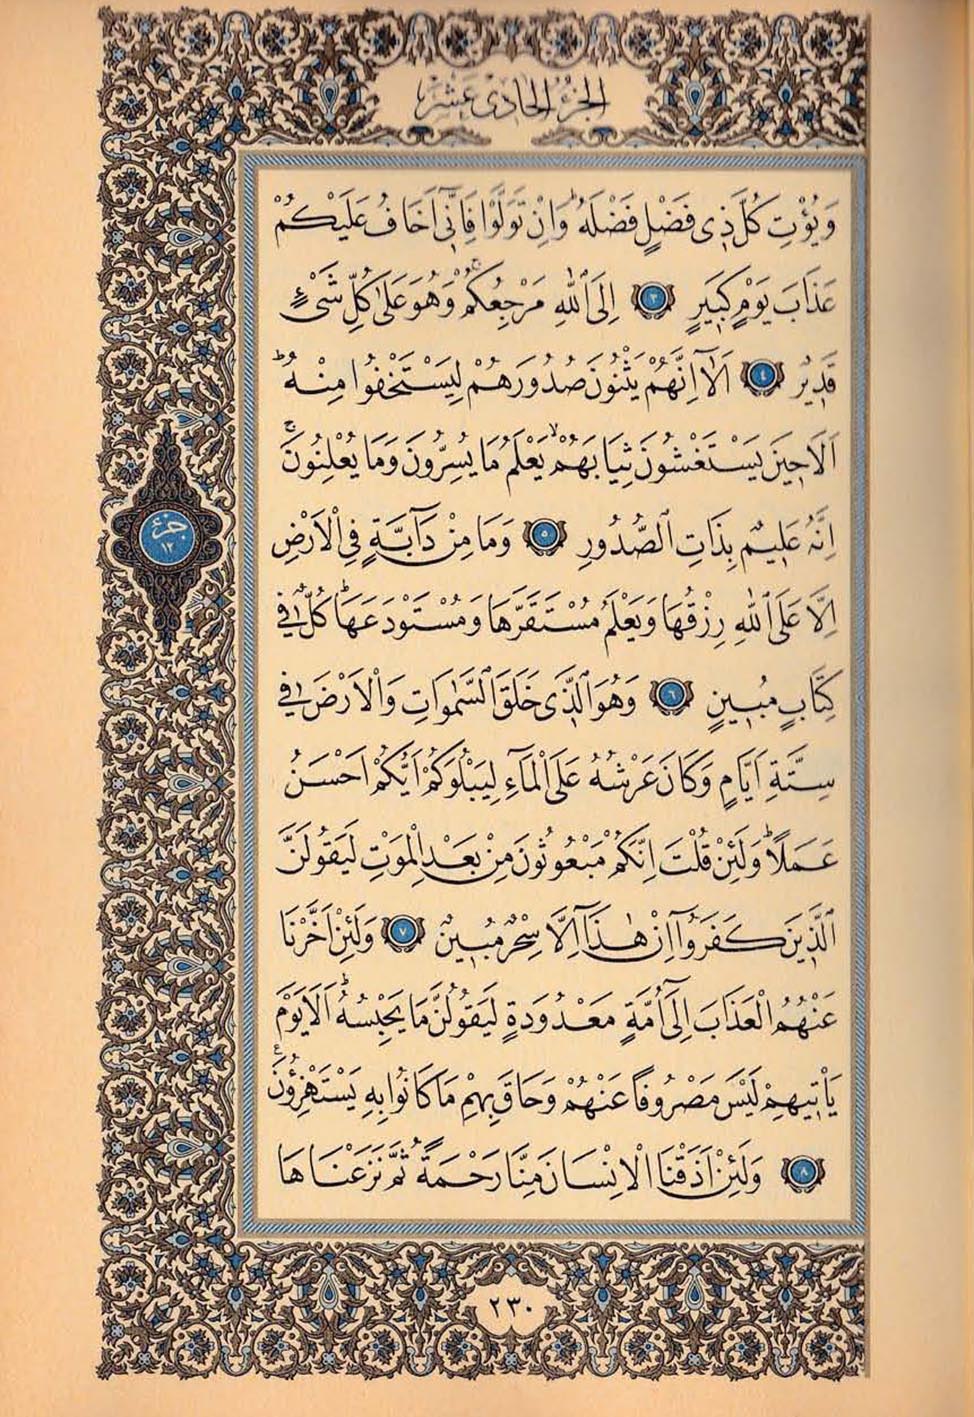 الجزء الحادى عشر
وَيُؤْتِ كُلَّ ذِى فَضْلٍ فَضْلَهُ ۜ وَاِنْ تَوَلَّوْا فَاِنّٓى اَخَافُ عَلَيْكُمْ
عَذَابَ يَوْمٍ كَبٖيرٍ ﴿٣﴾ اِلَى اللّٰهِ مَرْجِعُكُمْۚ وَهُوَ عَلٰى كُلِّ شَىْءٍ
قَدٖيرٌ ﴿٤﴾ اَلَٓا اِنَّهُمْ يَثْنُونَ صُدُورَهُمْ لِيَسْتَخْفُوا مِنْهُؕ
اَلَا حٖينَ يَسْتَغْشُونَ ثِيَابَهُمْۙ يَعْلَمُ مَا يُسِرُّونَ وَمَا يُعْلِنُونَۚ
اِنَّهُ عَلٖيمٌ بِذَاتِ الصُّدُورِ ﴿٥﴾ وَمَا مِنْ دَٓابَّةٍ فِى الْاَرْضِ
اِلَّا عَلَى اللّٰهِ رِزْقُهَا وَيَعْلَمُ مُسْتَقَرَّهَا وَمُسْتَوْدَعَهَاؕ كُلٌّ فٖى
كِتَابٍ مُبٖينٍ ﴿٦﴾ وَهُوَ الَّذٖى خَلَقَ السَّمٰوَاتِ وَالْاَرْضَ فٖى
سِتَّةِ اَيَّامٍ وَكَانَ عَرْشُهُ عَلَى الْمَٓاءِ لِيَبْلُوَكُمْ اَيُّكُمْ اَحْسَنُ
عَمَلًاؕ وَلَئِنْ قُلْتَ اِنَّكُمْ مَبْعُوثُونَ مِنْ بَعْدِ الْمَوْتِ لَيَقُولَنَّ
الَّذٖينَ كَفَرُٓوا اِنْ هٰذَٓا اِلَّا سِحْرٌ مُبٖينٌ ﴿٧﴾ وَلَئِنْ اَخَّرْنَا
عَنْهُمُ الْعَذَابَ اِلٰٓى اُمَّةٍ مَعْدُودَةٍ لَيَقُولُنَّ مَا يَحْبِسُهُؕ اَلَا يَوْمَ
يَاْتٖيهِمْ لَيْسَ مَصْرُوفًا عَنْهُمْ وَحَاقَ بِهِمْ مَا كَانُوا بِهٖ يَسْتَهْزِؤُنَࣖ
﴿٨﴾ وَلَئِنْ اَذَقْنَا الْاِنْسَانَ مِنَّا رَحْمَةً ثُمَّ نَزَعْنَاهَا
جزء
١٢
٢٣٠